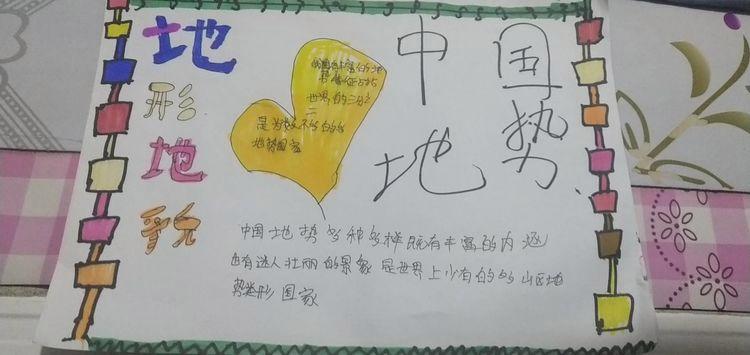 地形地貌
中国
地势
中国有丰富的地
势特征占据
世界的三分之
二
是为数不多的多
地势国家
中国地势多种多样既有丰富的内涵
也有迷人壮丽的景象是世界上少有的多山区地
势类形国家